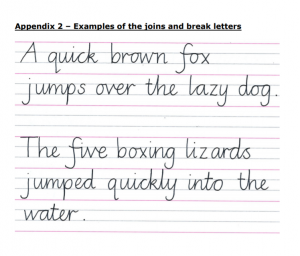 Appendix 2 – Examples of the joins and break letters
A quick brown fox
jumps over the lazy dog.
The five boxing lizards
jumped quickly into the
water.